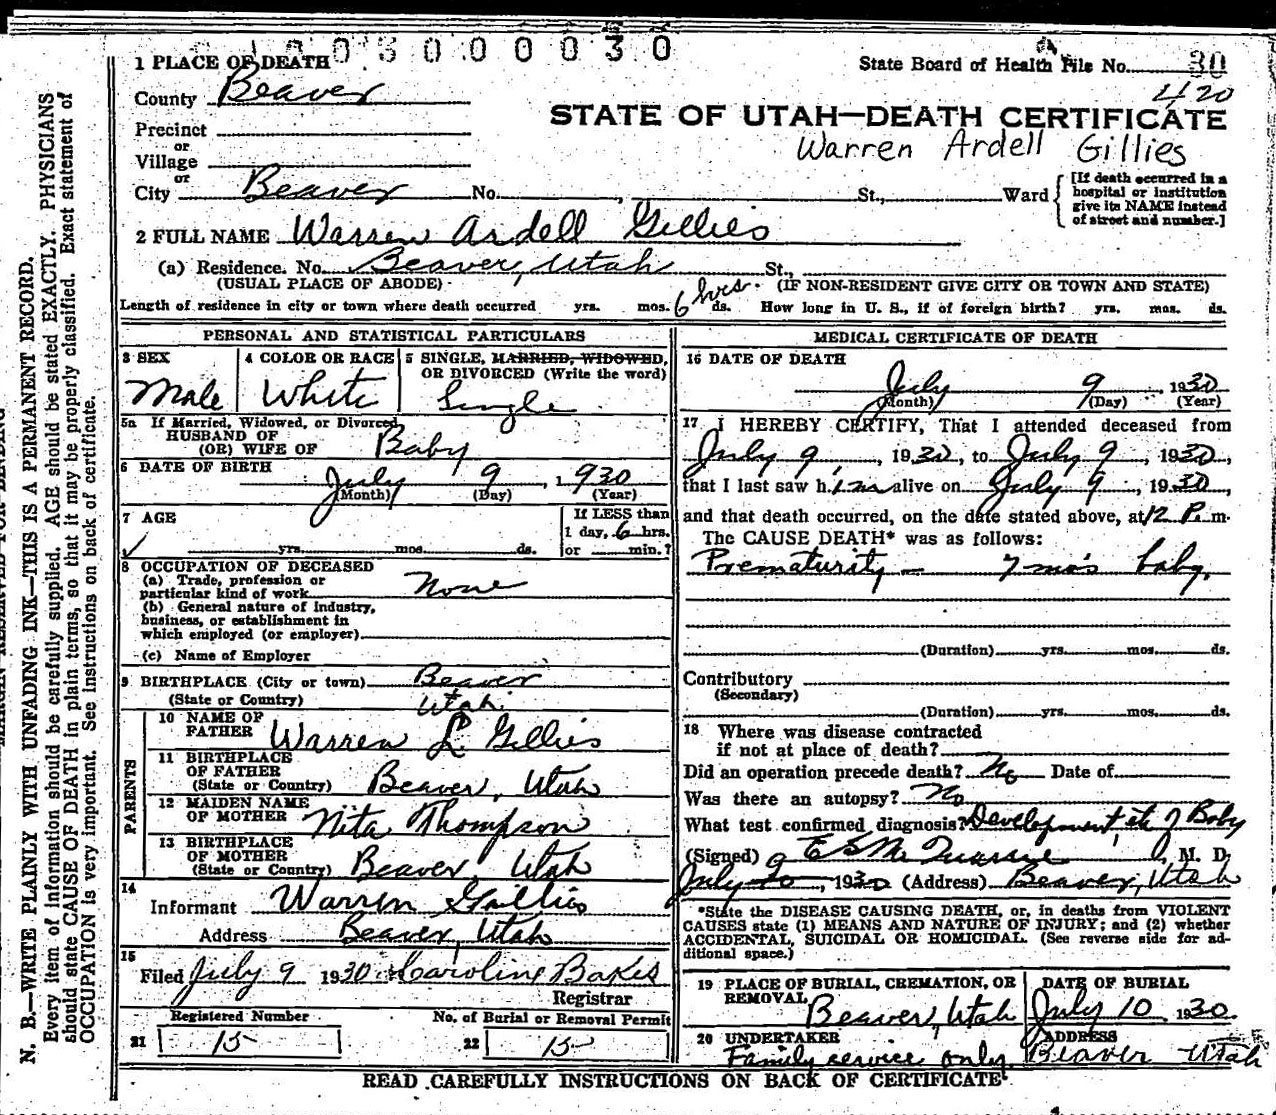 0030000030
1 PLACE OF DEATH
State Board of Health File No. 30
420
County Beaver
STATE OF UTAH—DEATH CERTIFICATE
Warren Ardell Gillies
Precinct
or
Village
or
City Beaver No. , St., Ward
[If death occurred in a hospital or institution give its NAME instead of street and number.]
2 FULL NAME Warren Ardell Gillies
(a) Residence. No. Beaver, Utah St.,
(USUAL PLACE OF ABODE) (IF NON-RESIDENT GIVE CITY OR TOWN AND STATE)
Length of residence in city or town where death occurred yrs. mos. 6 hrs. ds. How long in U. S., if of foreign birth? yrs. mos. ds.
PERSONAL AND STATISTICAL PARTICULARS
3 SEX
Male
4 COLOR OR RACE
White
5 SINGLE, MARRIED, WIDOWED, OR DIVORCED (Write the word)
Single
5a If Married, Widowed, or Divorced
HUSBAND OF
(OR) WIFE OF Baby
6 DATE OF BIRTH
July 9, 1930
(Month) (Day) (Year)
7 AGE
yrs. mos. ds.
If LESS than
1 day, 6 hrs.
or min.?
8 OCCUPATION OF DECEASED
(a) Trade, profession or
particular kind of work None
(b) General nature of industry,
business, or establishment in
which employed (or employer)
(c) Name of Employer
9 BIRTHPLACE (City or town) Beaver
(State or Country) Utah
PARENTS
10 NAME OF FATHER Warren L Gillies
11 BIRTHPLACE OF FATHER (State or Country) Beaver, Utah
12 MAIDEN NAME OF MOTHER Nita Thompson
13 BIRTHPLACE OF MOTHER (State or Country) Beaver, Utah
14
Informant Warren Gillies
Address Beaver, Utah
15
Filed July 9 1930 Caroline Bakes
Registrar
Registered Number
21 15
No. of Burial or Removal Permit
22 15
MEDICAL CERTIFICATE OF DEATH
16 DATE OF DEATH
July 9, 1930
(Month) (Day) (Year)
17 I HEREBY CERTIFY, That I attended deceased from
July 9, 1930, to July 9, 1930,
that I last saw him alive on July 9, 1930,
and that death occurred, on the date stated above, at 12 P. m.
The CAUSE DEATH* was as follows:
Prematurity — 7 mo's baby,
(Duration) yrs. mos. ds.
Contributory
(Secondary)
(Duration) yrs. mos. ds.
18 Where was disease contracted
if not at place of death?
Did an operation precede death? No Date of
Was there an autopsy? No
What test confirmed diagnosis? Development, etc of Baby
(Signed) M. D.
July 10, 1930 (Address) Beaver, Utah
*State the DISEASE CAUSING DEATH, or, in deaths from VIOLENT
CAUSES state (1) MEANS AND NATURE OF INJURY; and (2) whether
ACCIDENTAL, SUICIDAL OR HOMICIDAL. (See reverse side for ad-
ditional space.)
19 PLACE OF BURIAL, CREMATION, OR REMOVAL
Beaver, Utah
DATE OF BURIAL
July 10, 1930
20 UNDERTAKER
Family service only
ADDRESS
Beaver Utah
READ CAREFULLY INSTRUCTIONS ON BACK OF CERTIFICATE
N. B.—WRITE PLAINLY WITH UNFADING INK—THIS IS A PERMANENT RECORD.
Every item of information should be carefully supplied. AGE should be stated EXACTLY. PHYSICIANS
should state CAUSE OF DEATH in plain terms, so that it may be properly classified. Exact statement of
OCCUPATION is very important. See instructions on back of certificate.